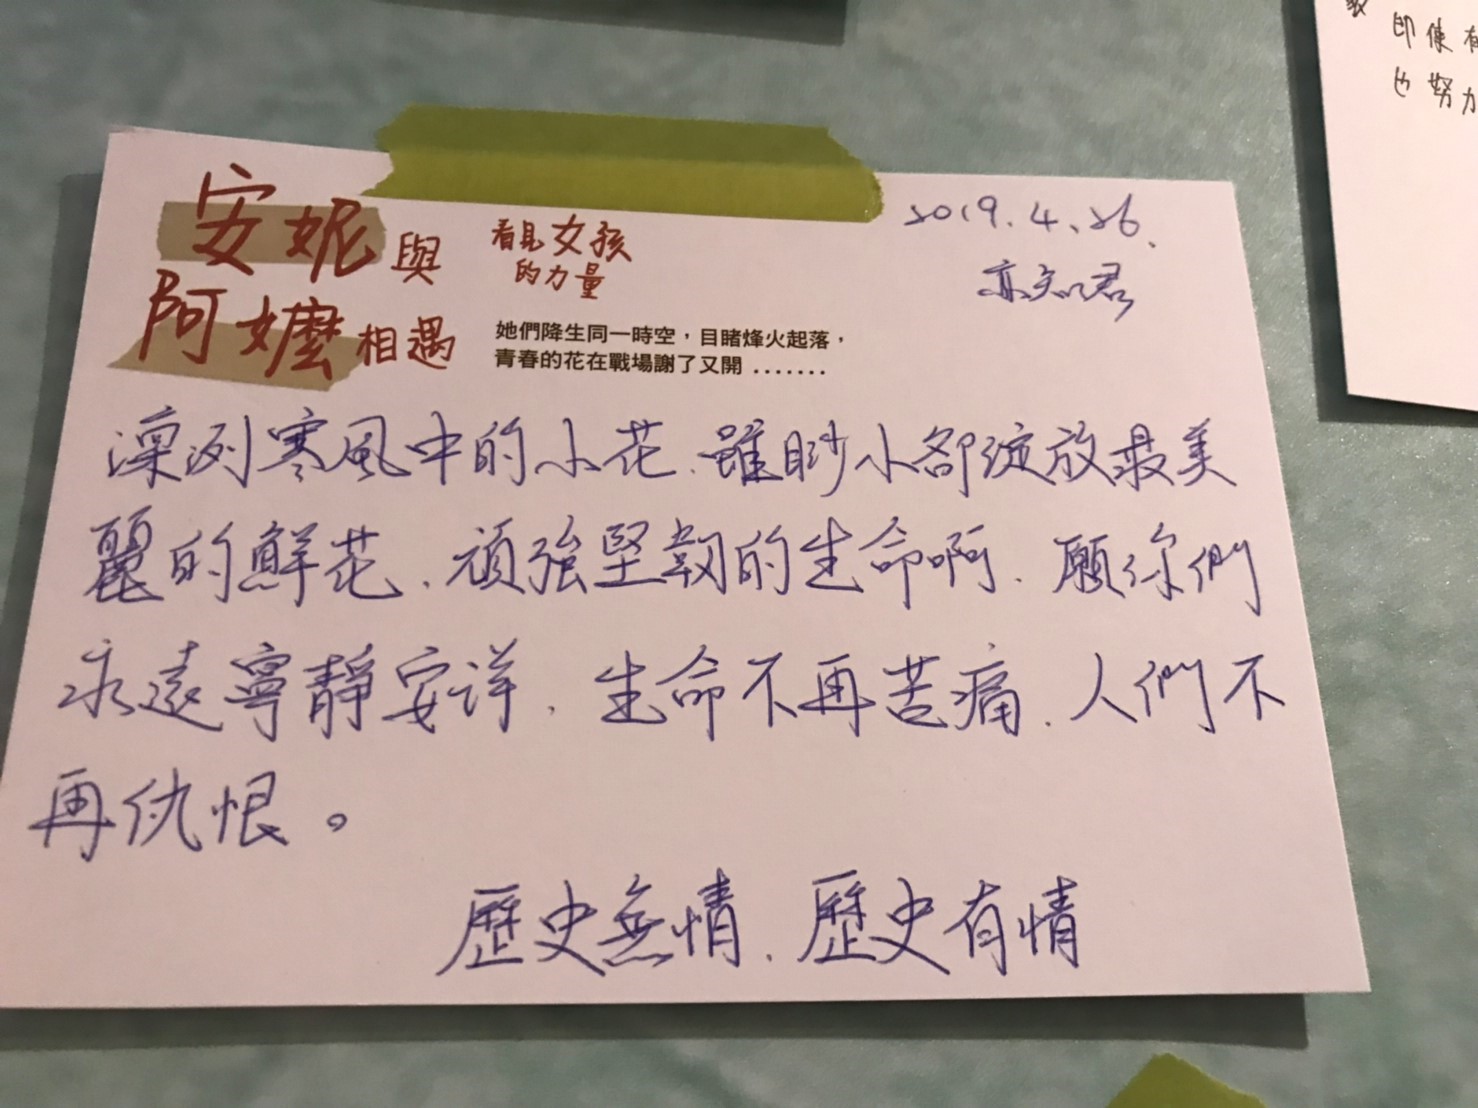 安妮與
阿嬤相遇
看見女孩
的力量
她們降生同一時空，目睹烽火起落，
青春的花在戰場謝了又開 .......
2019.4.26.
凜冽寒風中的小花、雖眇小卻綻放最美
麗的鮮花、頑強堅韌的生命啊、願你們
永遠寧靜安详、生命不再苦痛、人們不
再仇恨。
歷史無情、歷史有情
即使有
也努力